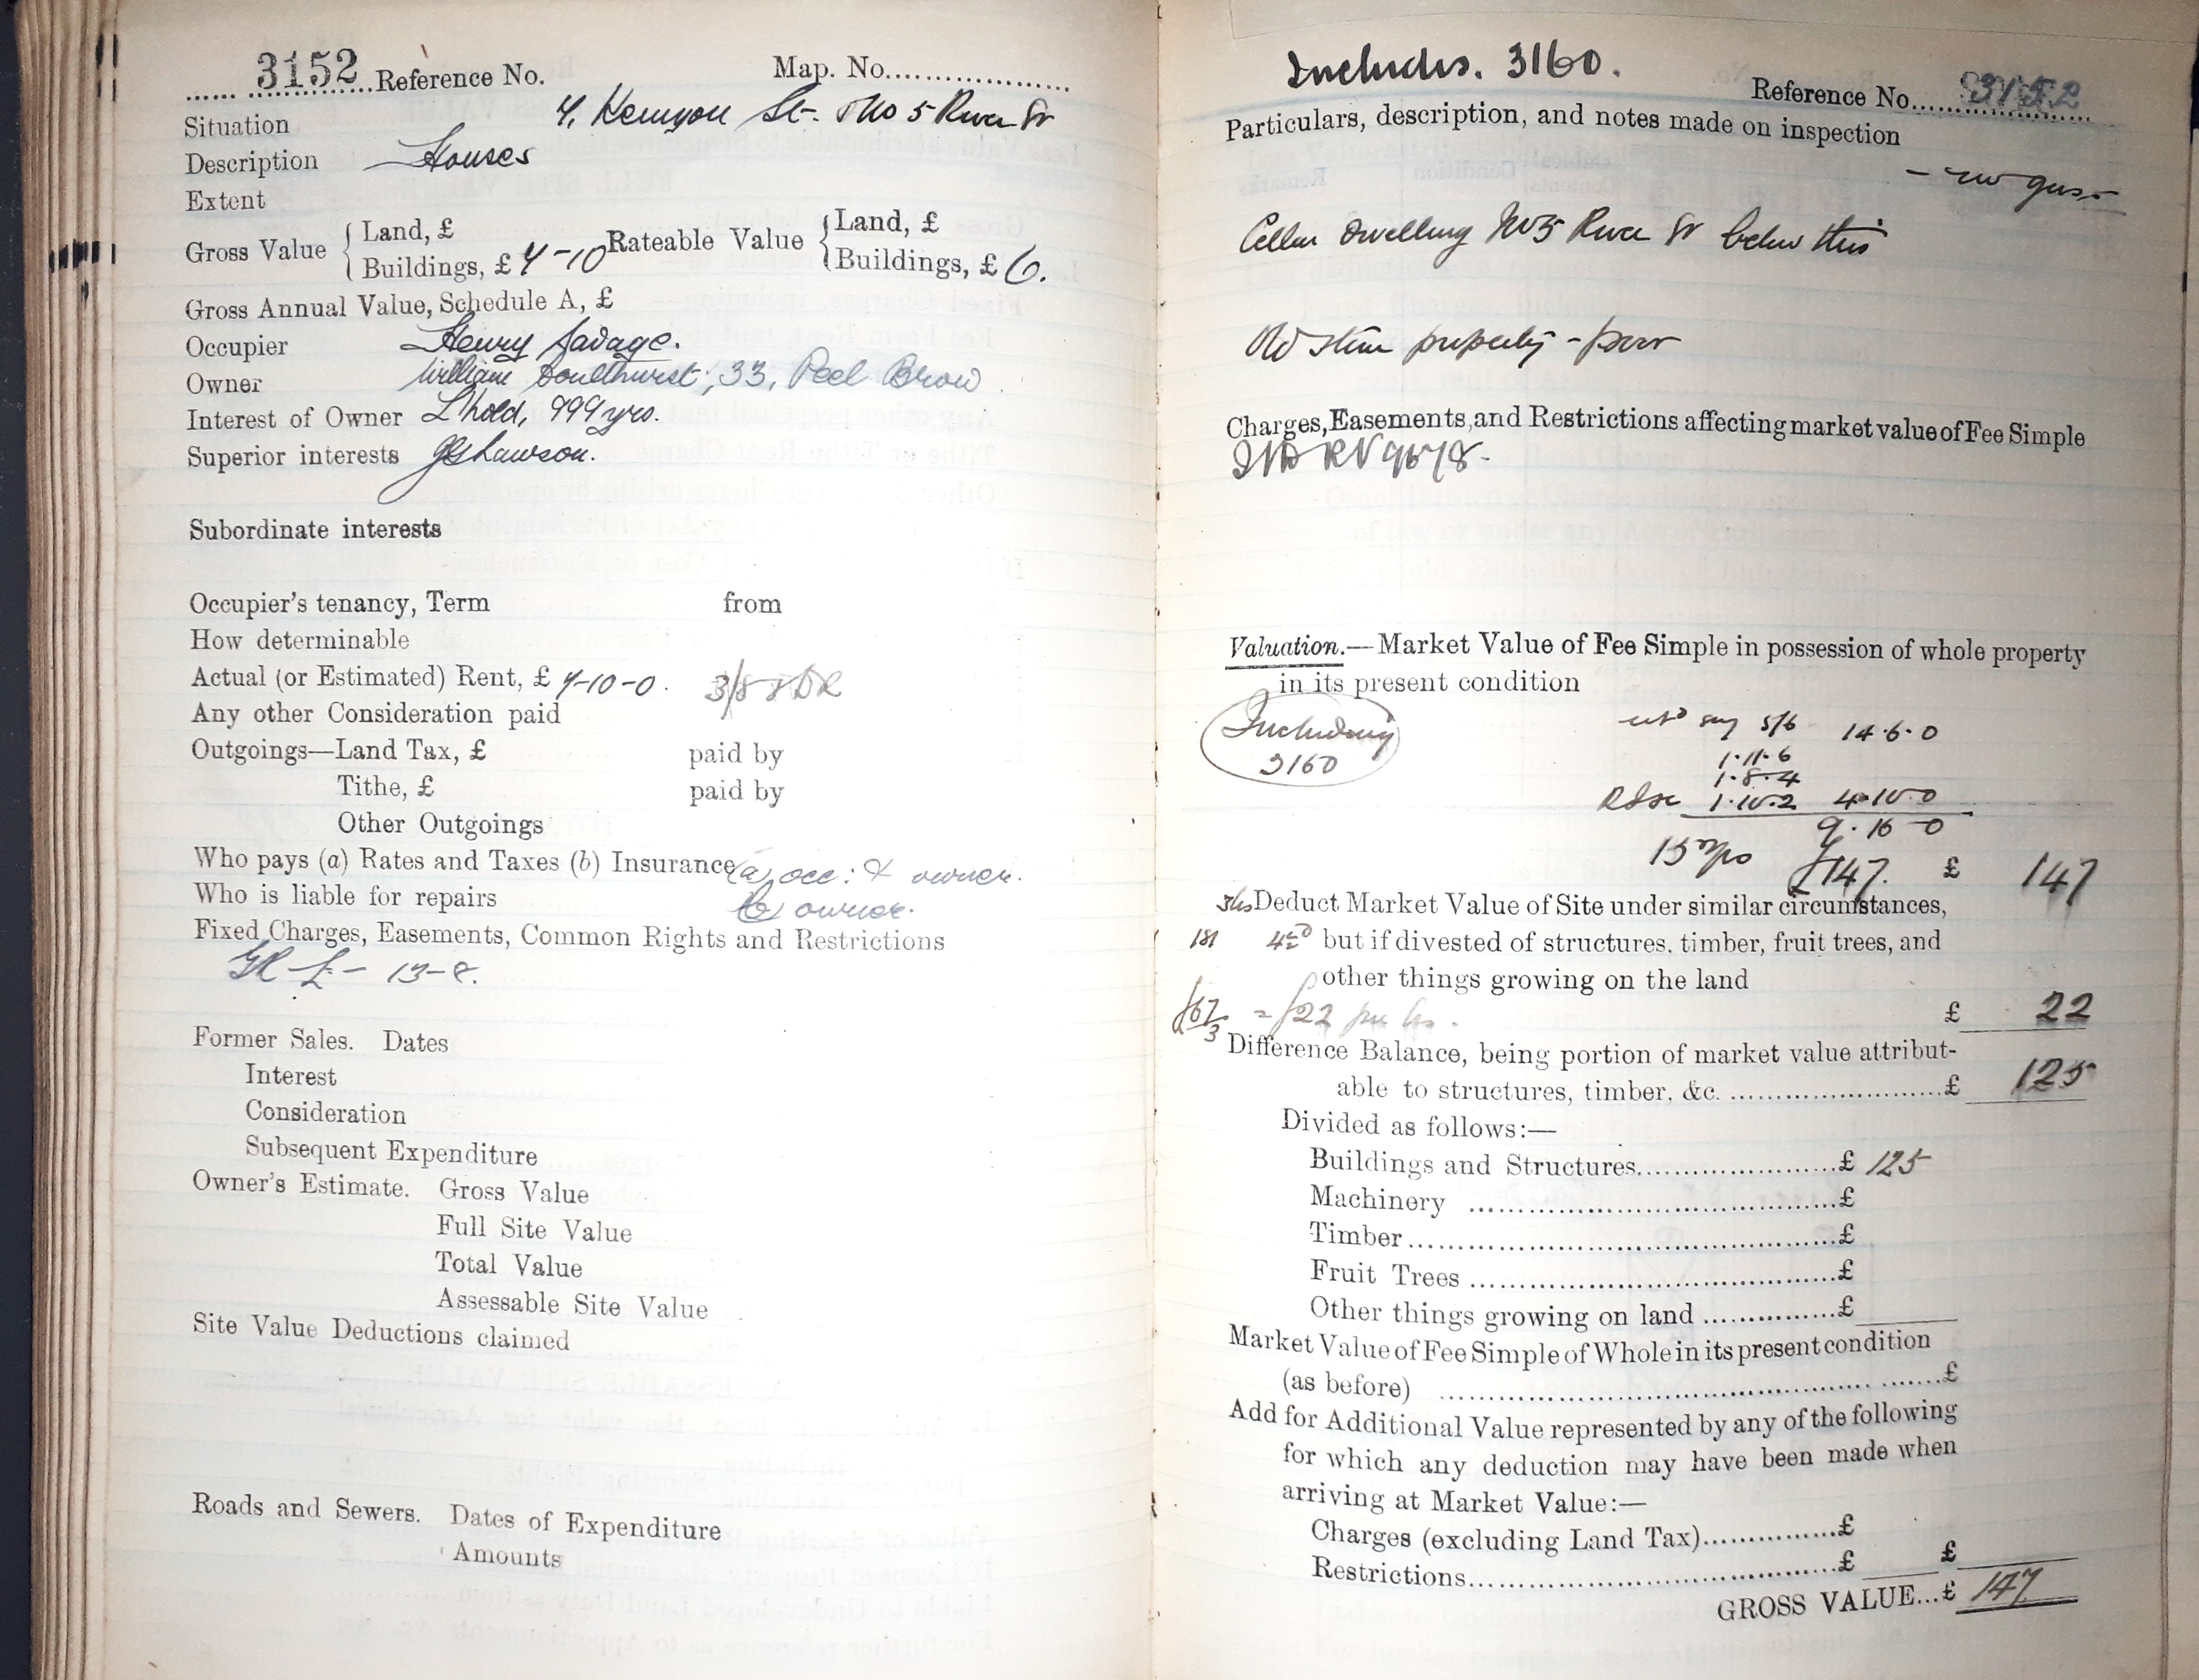 3152 Reference No. Map. No.
Situation 7, Kenyon St. & No 5 River St
Description Houses
Extent
Gross Value { Land, £
Buildings, £ 7-10 Rateable Value { Land, £
Buildings, £ 6.
Gross Annual Value, Schedule A, £
Occupier Henry Savage.
Owner William Southurst, 33, Peel Brow
Interest of Owner L'hold, 999 yrs.
Superior interests Lawson.
Subordinate interests
Occupier's tenancy, Term from
How determinable
Actual (or Estimated) Rent, £ 7-10-0. 3/8
Any other Consideration paid
Outgoings—Land Tax, £ paid by
Tithe, £ paid by
Other Outgoings
Who pays (a) Rates and Taxes (b) Insurance (a) occ: & owner.
Who is liable for repairs (b) owner.
Fixed Charges, Easements, Common Rights and Restrictions
GR £- 13-8.
Former Sales. Dates
Interest
Consideration
Subsequent Expenditure
Owner's Estimate. Gross Value
Full Site Value
Total Value
Assessable Site Value
Site Value Deductions claimed
Roads and Sewers. Dates of Expenditure
Amounts
Includes. 3160.
Reference No. 3152
Particulars, description, and notes made on inspection
Cellar dwelling No 5 River St below this
Old stone property - poor
Charges, Easements, and Restrictions affecting market value of Fee Simple
Valuation.—Market Value of Fee Simple in possession of whole property
in its present condition
Including
3160
say 5/6 14.6.0
1.11.6
1.8.4
1.10.2 4.10.0
9.16 0
15 yp £147. £ 147
3hs Deduct Market Value of Site under similar circumstances,
181 but if divested of structures, timber, fruit trees, and
other things growing on the land
£67/3 = £22 per hs. £ 22
Difference Balance, being portion of market value attribut-
able to structures, timber, &c. £ 125
Divided as follows:—
Buildings and Structures £ 125
Machinery £
Timber £
Fruit Trees £
Other things growing on land £
Market Value of Fee Simple of Whole in its present condition
(as before) £
Add for Additional Value represented by any of the following
for which any deduction may have been made when
arriving at Market Value:—
Charges (excluding Land Tax) £
Restrictions £ £
GROSS VALUE...£ 147